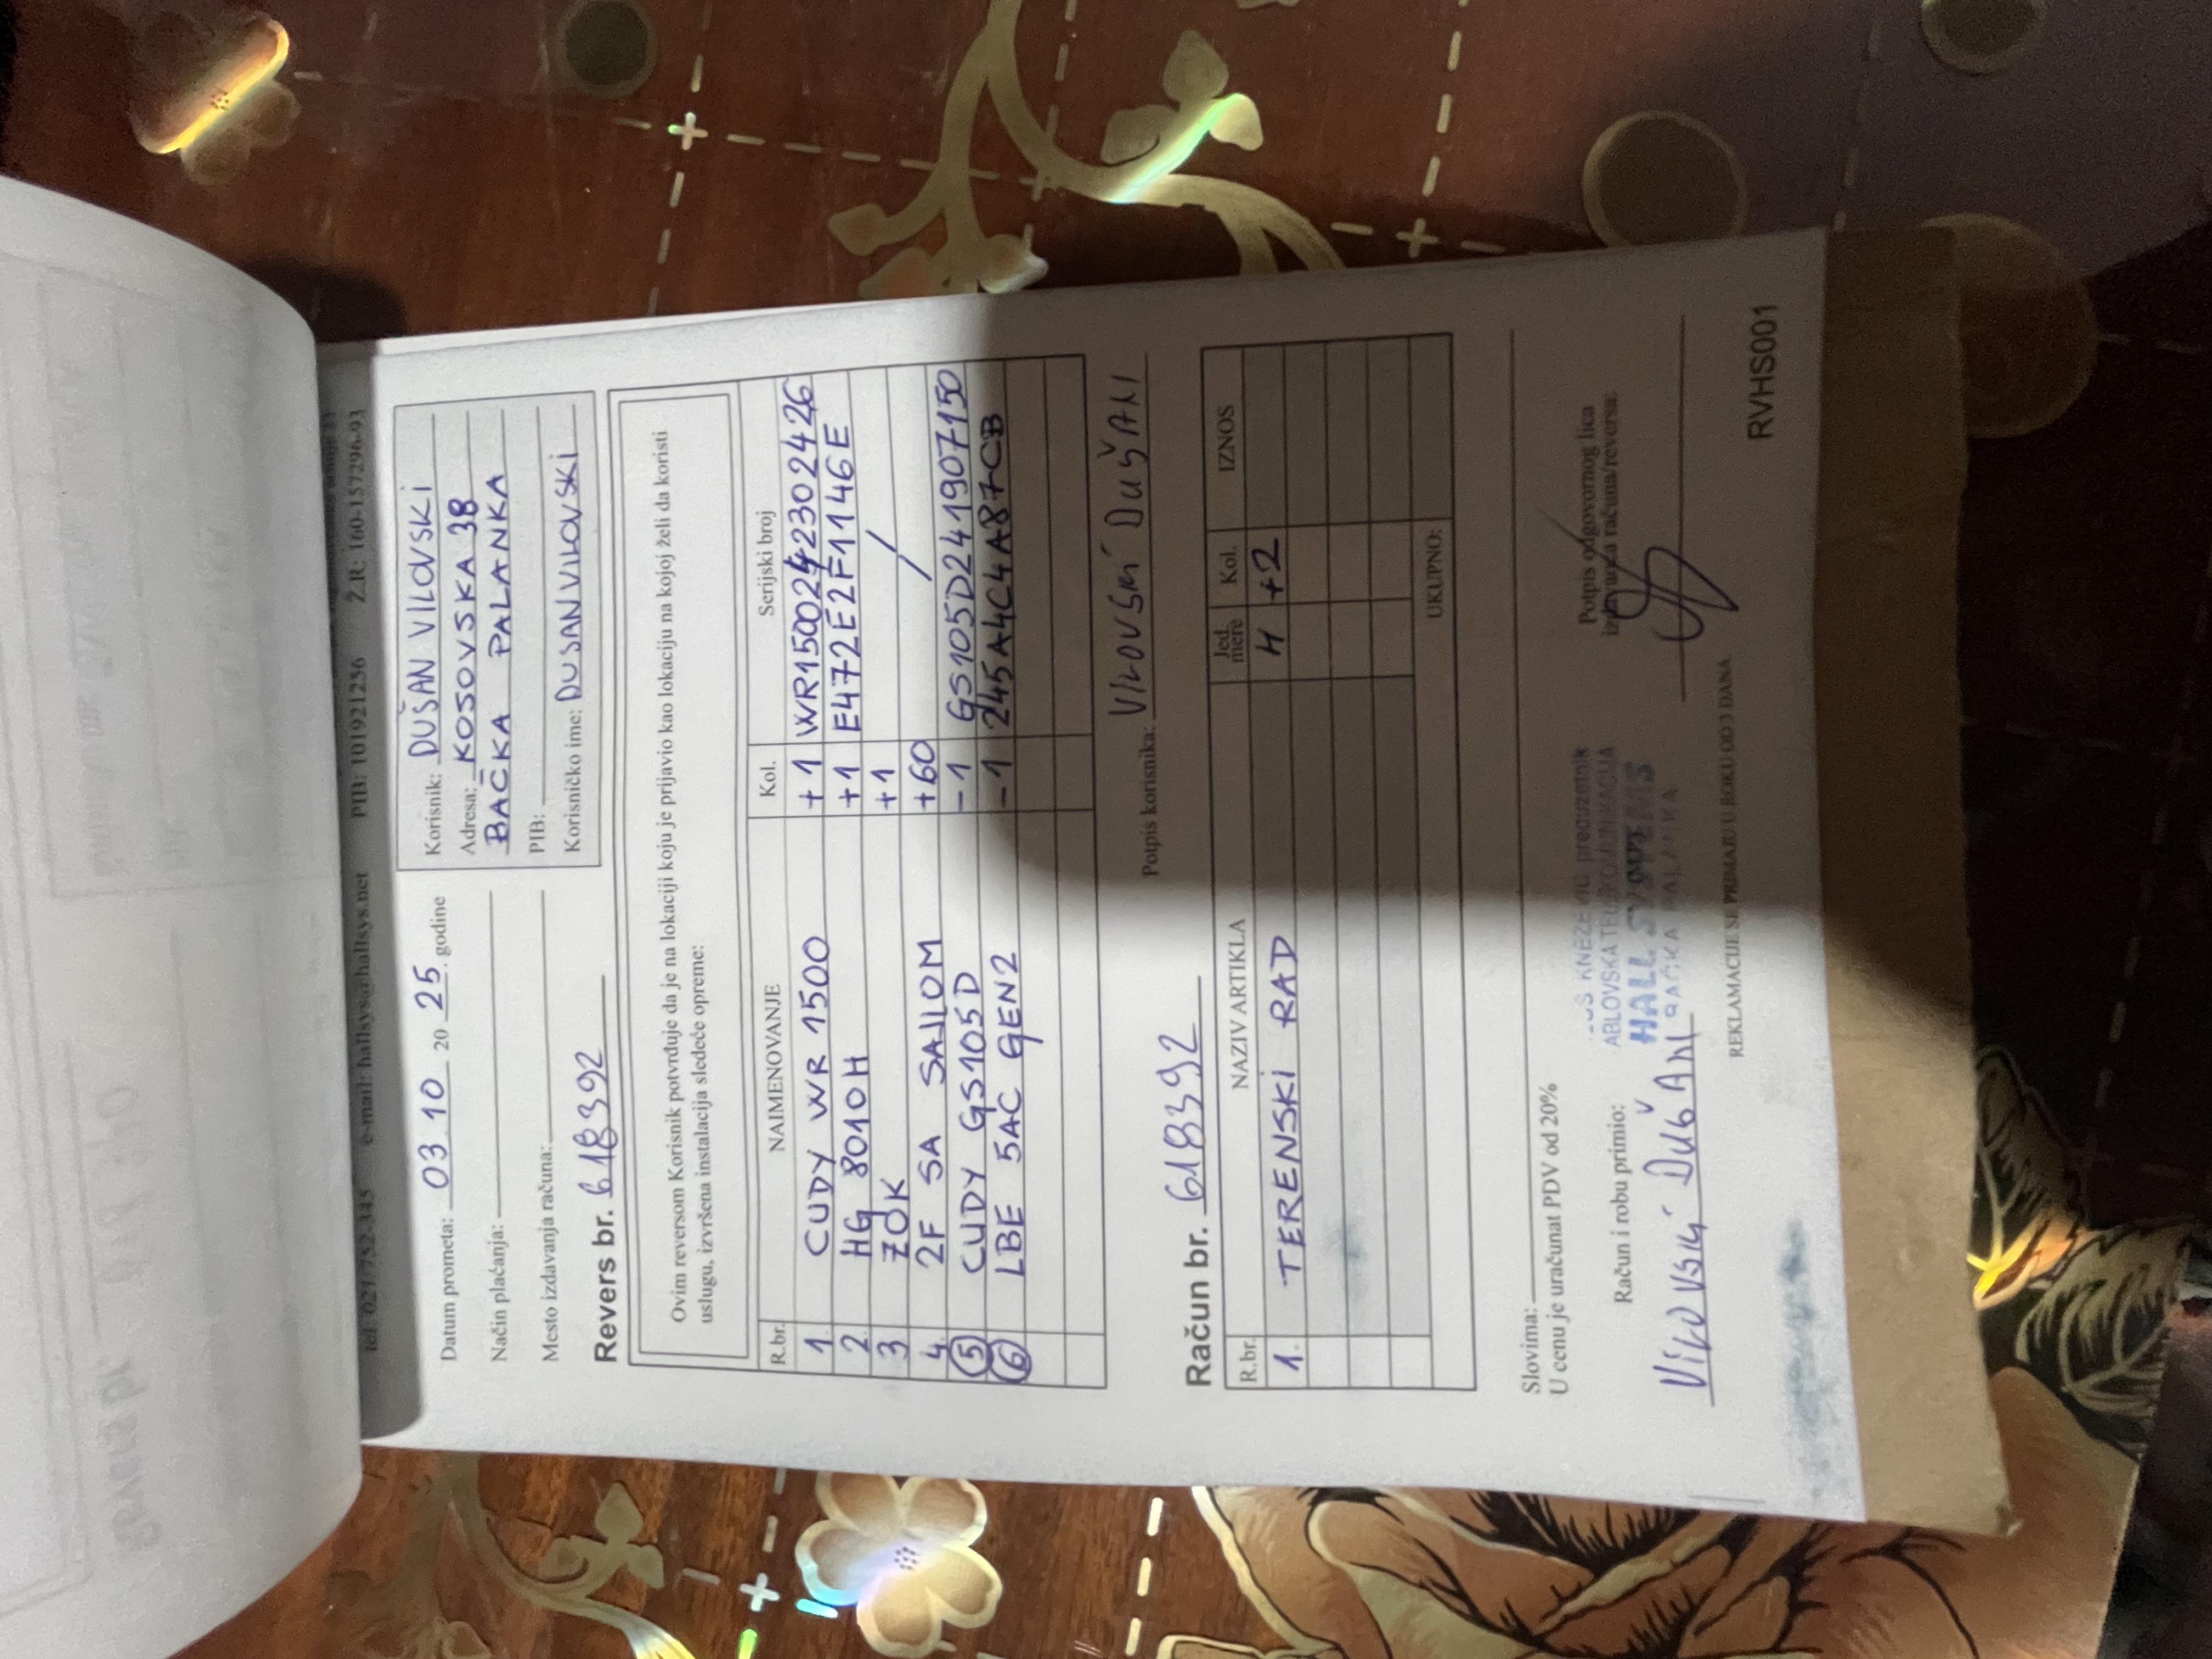 e-mail: hallsys@hallsys.net PIB: 101921236 Ž.R: 160-157296-93
Datum prometa: 03.10 2025. godine
Način plaćanja:
Mesto izdavanja računa:
Korisnik: DUŠAN VILOVSKI
Adresa: KOSOVSKA 38
BAČKA PALANKA
PIB:
Korisničko ime: DUSANVILOVSKI
Revers br. 618392
Ovim reversom Korisnik potvrđuje da je na lokaciji koju je prijavio kao lokaciju na kojoj želi da koristi
uslugu, izvršena instalacija sledeće opreme:
R.br. NAIMENOVANJE Kol. Serijski broj
1. CUDY WR 1500 +1 WR15002423024​26
2. HG 8010H +1 E472E2F1146E
3 ZOK +1 /
4. 2F SA SAJLOM +60 /
5 CUDY GS105D -1 GS105D241907150
6 LBE 5AC GEN2 -1 245A4C4A87CB
Potpis korisnika: VILOVSKI DUŠAN
Račun br. 618392
R.br. NAZIV ARTIKLA Jed. mere Kol. IZNOS
1. TERENSKI RAD H +2
UKUPNO:
Slovima:
U cenu je uračunat PDV od 20%
Račun i robu primio:
VILOVSKI DUŠAN
KNEŽEVIĆ preduzetnik
KABLOVSKA TELEKOMUNIKACIJA
HALL SYSTEMS
BAČKA PALANKA
Potpis odgovornog lica
izdavanja računa/reversa:
REKLAMACIJE SE PRIMAJU U ROKU OD 3 DANA.
RVHS001